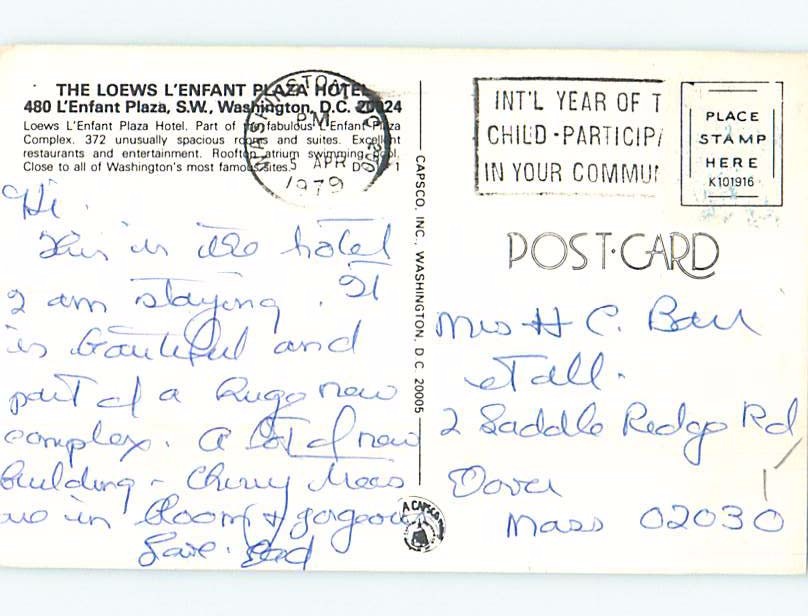 THE LOEWS L'ENFANT PLAZA HOTEL
480 L'Enfant Plaza, S.W., Washington, D.C. 20024
Loews L'Enfant Plaza Hotel. Part of the fabulous L'Enfant Plaza
Complex. 372 unusually spacious rooms and suites. Excellent
restaurants and entertainment. Rooftop atrium swimming pool.
Close to all of Washington's most famous sites.
WASHINGTON, DC
PM
5 APR
1979
Hi.
This is the hotel
I am staying. It
is beautiful and
part of a huge new
complex. A lot of new
building - Cherry trees
are in bloom & gorgeous
Love. Dad
CAPSCO, INC., WASHINGTON, D.C. 20005
A CAPSCO
INT'L YEAR OF T
CHILD-PARTICIPA
IN YOUR COMMUN
PLACE
STAMP
HERE
K101916
POST-CARD
Mrs H C. Barr
et all.
2 Saddle Redge Rd
Dover
Mass 02030